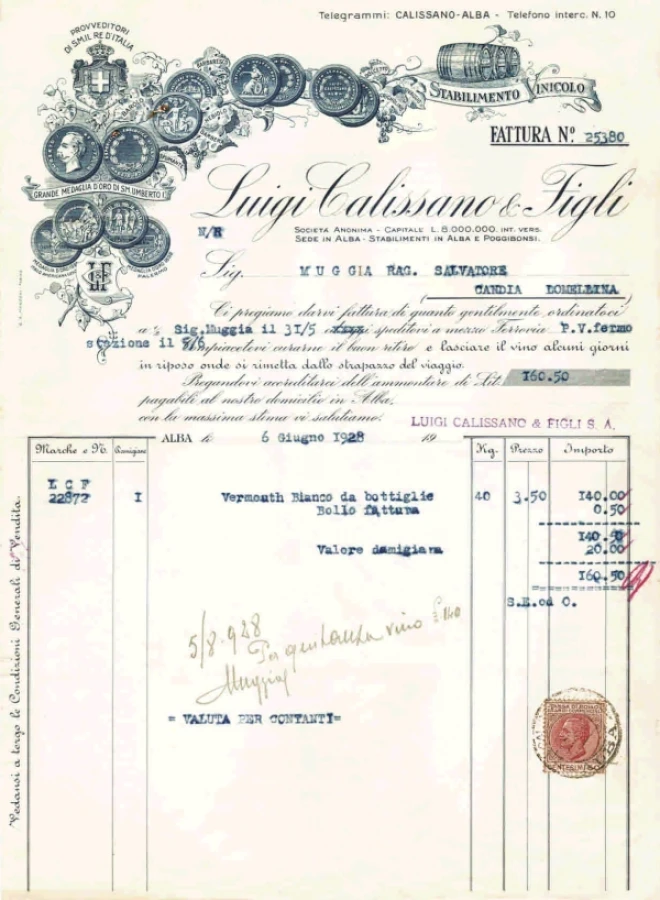 Telegrammi: CALISSANO-ALBA - Telefono interc. N. 10
PROVVEDITORI
DI S.M. IL RE D'ITALIA
STABILIMENTO VINICOLO
FATTURA Nº 25380
GRANDE MEDAGLIA D'ORO DI S.M. UMBERTO I.
Luigi Calissano & Figli
N/R
SOCIETÀ ANONIMA - CAPITALE L. 8.000.000. INT. VERS.
SEDE IN ALBA - STABILIMENTI IN ALBA E POGGIBONSI.
PALERMO
Sig. MUGGIA RAG. SALVATORE
( CANDIA LOMELLINA
Ci pregiamo darvi fattura di quanto gentilmente ordinatoci
a 1/2 Sig. Muggia il 31/5 xxxx speditovi a mezzo Ferrovia P.V.fermo
stazione il 5/6 Compiacetevi curarne il buon ritiro e lasciare il vino alcuni giorni
in riposo onde si rimetta dallo strapazzo del viaggio.
Pregandovi accreditarci dell'ammontare di Lit. 160.50
pagabile al nostro domicilio in Alba,
con la massima stima vi salutiamo.
LUIGI CALISSANO & FIGLI S. A.
ALBA li 6 Giugno 1928 19
Marche e N. Damigiane Kg. Prezzo Importo
L C F
22872 I Vermouth Bianco da bottiglie 40 3.50 140.00
Bollo fattura 0.50
140.50
Valore damigiana 20.00
160.50
S.E.od O.
5/8.928
Per quitanza vino £ 140
Muggia
= VALUTA PER CONTANTI=
ALBA
Vedansi a tergo le Condizioni Generali di Vendita.